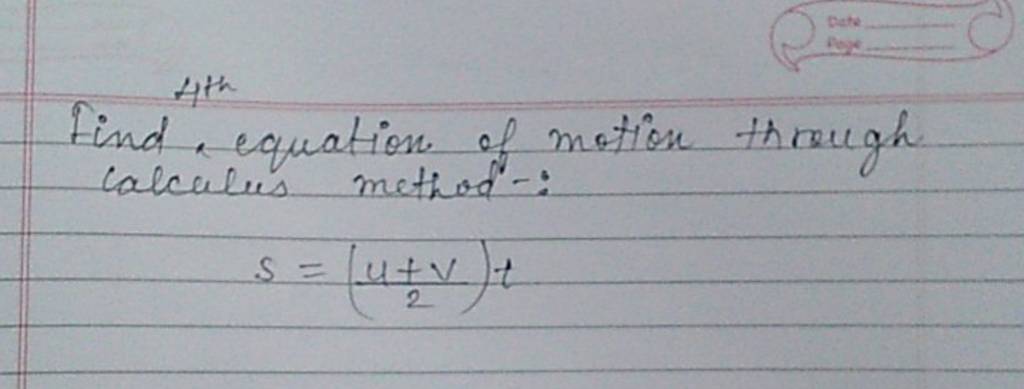 Date
Page
4th
Find ‸ equation of motion through
calculus method -:
s = (u+v/2)t